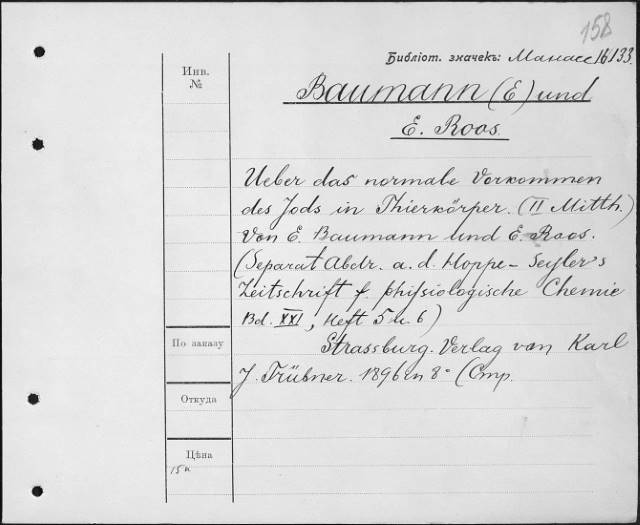 158
Библіот. значекъ: Манасс 16133.
Инв.
№
Baumann (E) und
E. Roos.
Ueber das normale Vorkommen
des Jods in Thierkörper. (II Mitth.)
Von E. Baumann und E. Roos.
(Separat Abdr. a. d. Hoppe-Seyler's
Zeitschrift f. phisiologische Chemie
Bd. XXI, Heft 5 u. 6)
По заказу
Strassburg. Verlag von Karl
J. Trübner. 1896 in 8° (Стр.
Откуда
Цѣна
15 к